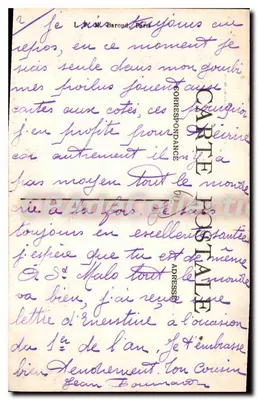 je suis toujours au
repos, en ce moment je
suis seule dans mon gourbi
mes poilus jouent aux
cartes aux cotés, c'est pourquoi
j'en profite pour t'écrire
car autrement il n'y a
pas moyen tout le monde
crie à la fois. Je suis
toujours en excellente santée
j'espère que tu est de même
A St Malo tout le monde
va bien, j'ai reçu une
lettre d'Ernestine à l'occasion
du 1er de l'an. Je t'embrasse
bien Tendrement. Ton Cousin
Jean
CARTE POSTALE
CORRESPONDANCE
ADRESSE